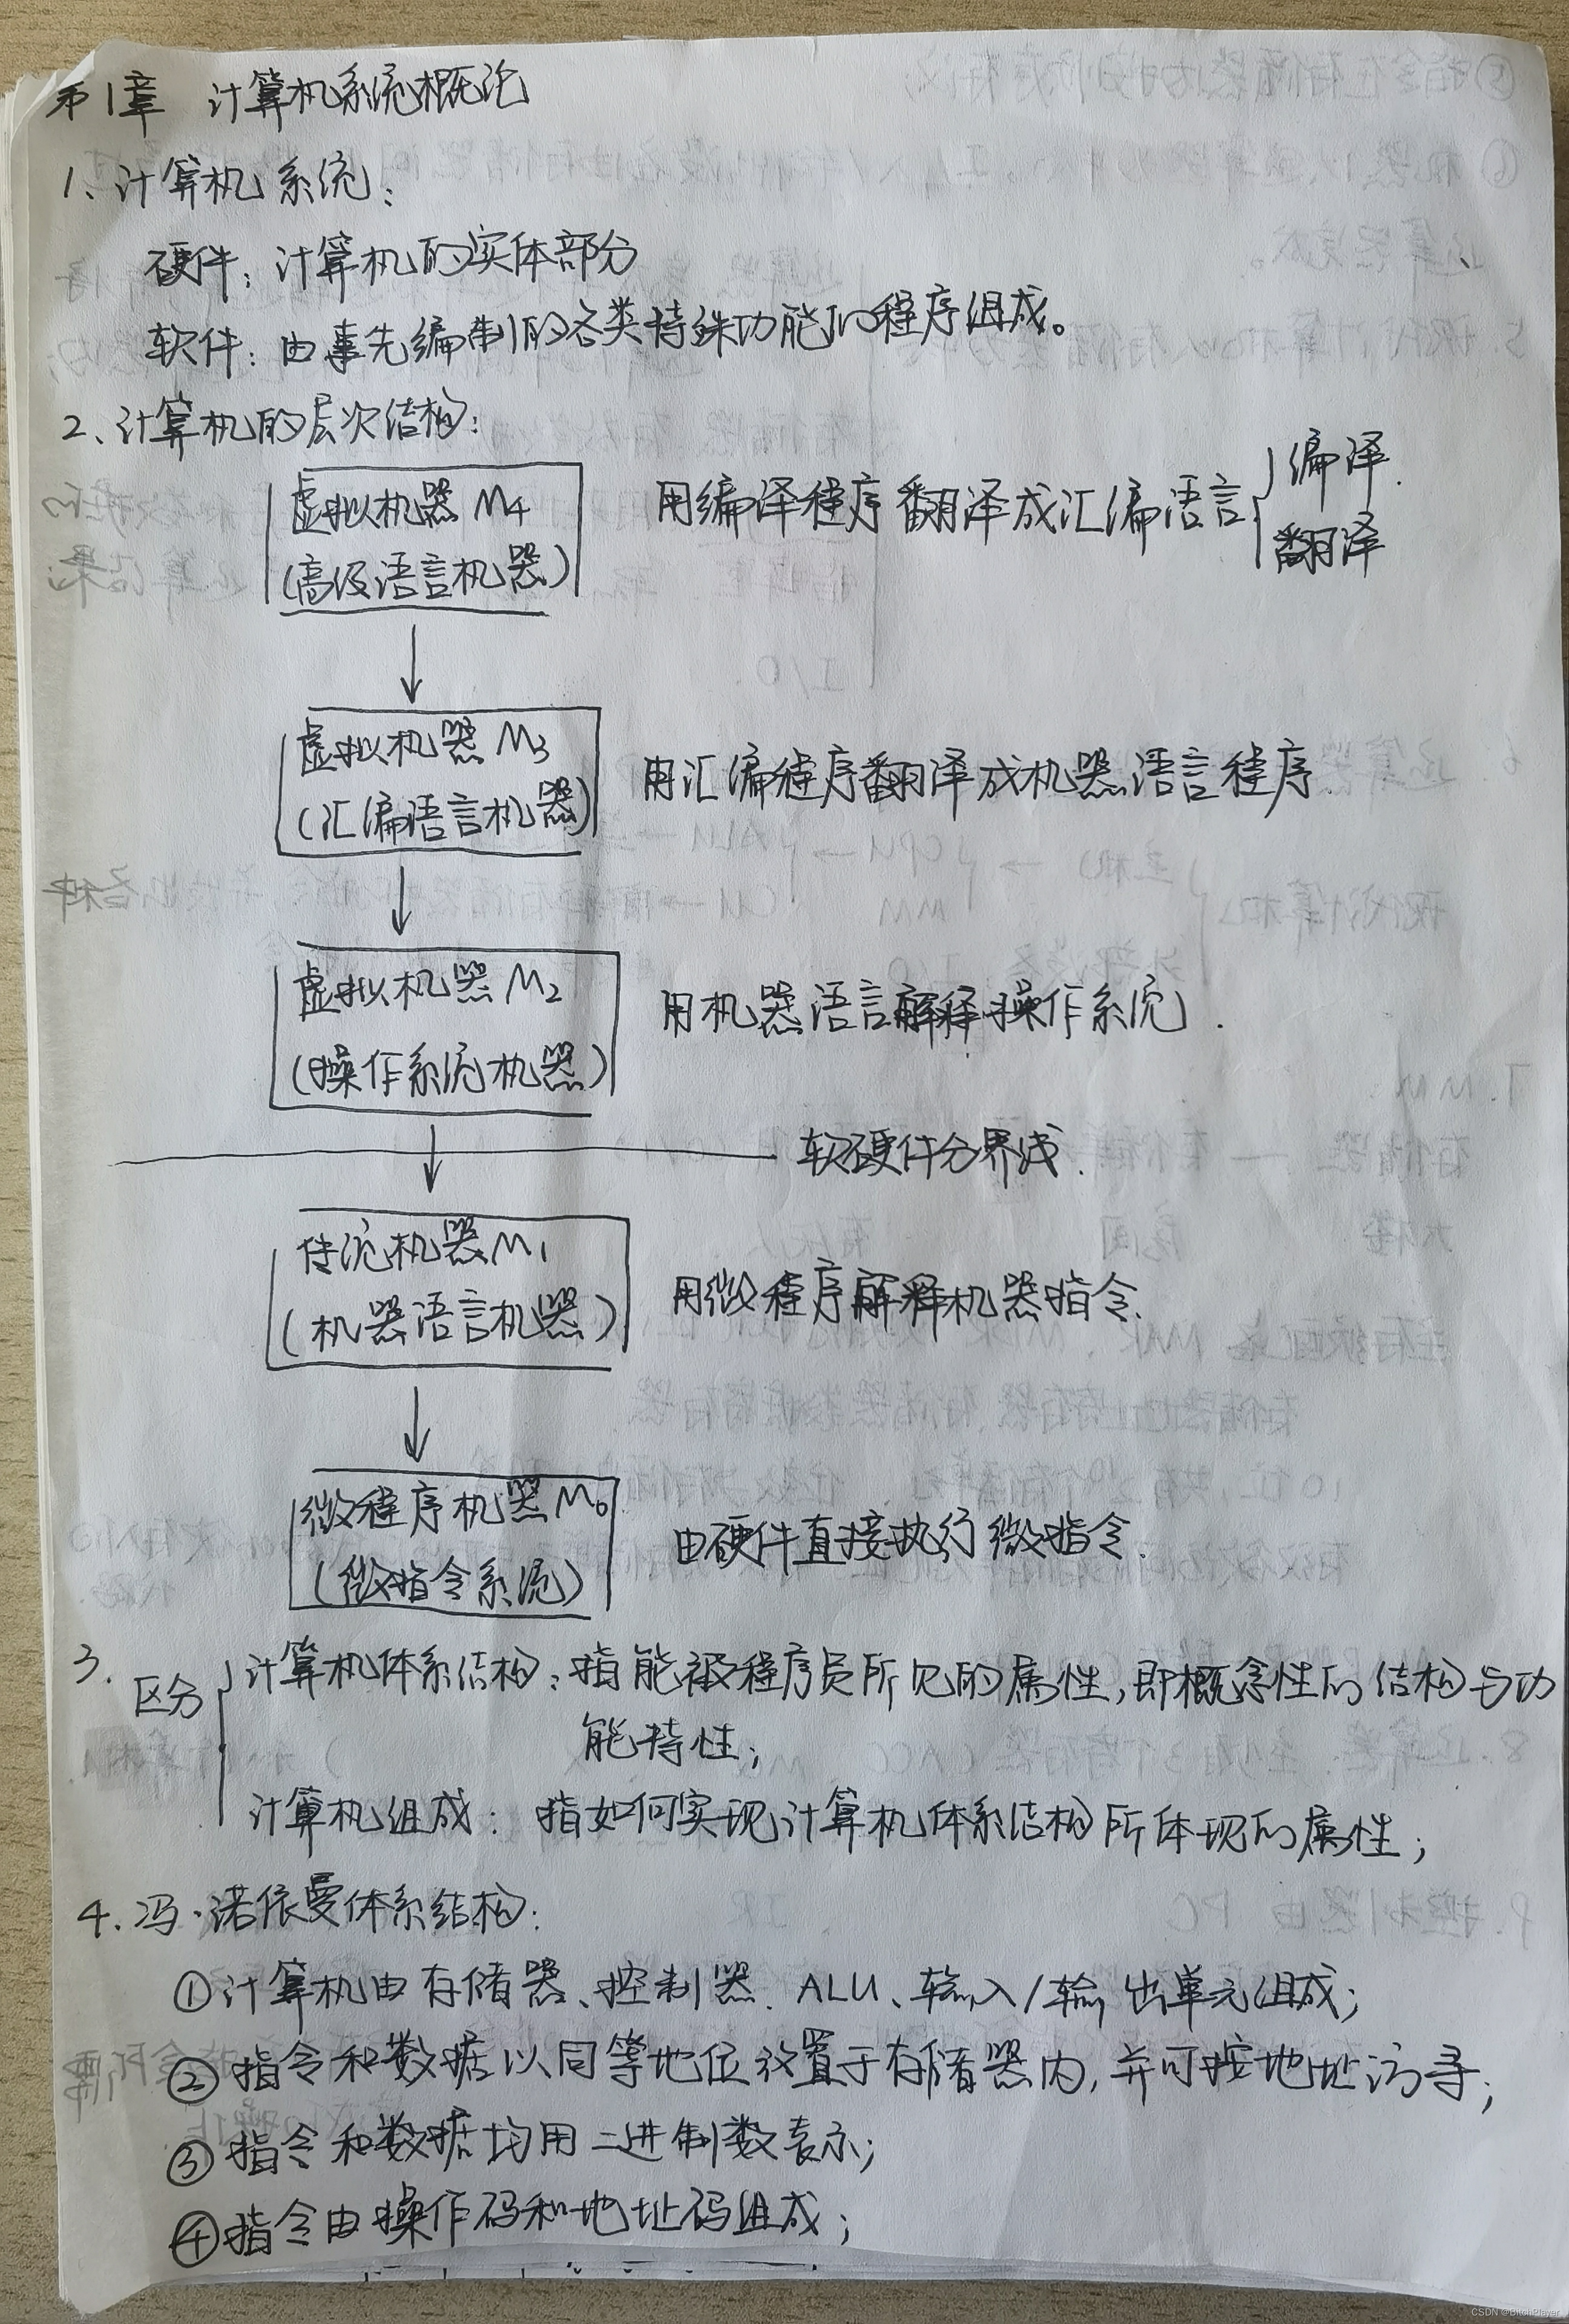 第1章 计算机系统概论
1、计算机系统：
硬件：计算机的实体部分
软件：由事先编制的各类特殊功能的程序组成。
2、计算机的层次结构：
虚拟机器M4
(高级语言机器)
用编译程序翻译成汇编语言
编译.
翻译
虚拟机器M3
(汇编语言机器)
用汇编程序翻译成机器语言程序.
虚拟机器M2
(操作系统机器)
用机器语言解释操作系统.
软硬件分界线.
传统机器M1
(机器语言机器)
用微程序解释机器指令.
微程序机器M0
(微指令系统)
由硬件直接执行微指令.
3.
区分
计算机体系结构：指能被程序员所见的属性,即概念性的结构与功
能特性;
计算机组成：指如何实现计算机体系结构所体现的属性;
4.冯·诺依曼体系结构：
①计算机由存储器、控制器、ALU、输入/输出单元组成;
②指令和数据以同等地位放置于存储器内,并可按地址访寻;
③指令和数据均用二进制数表示;
④指令由操作码和地址码组成;
CSDN @BitchPlayer